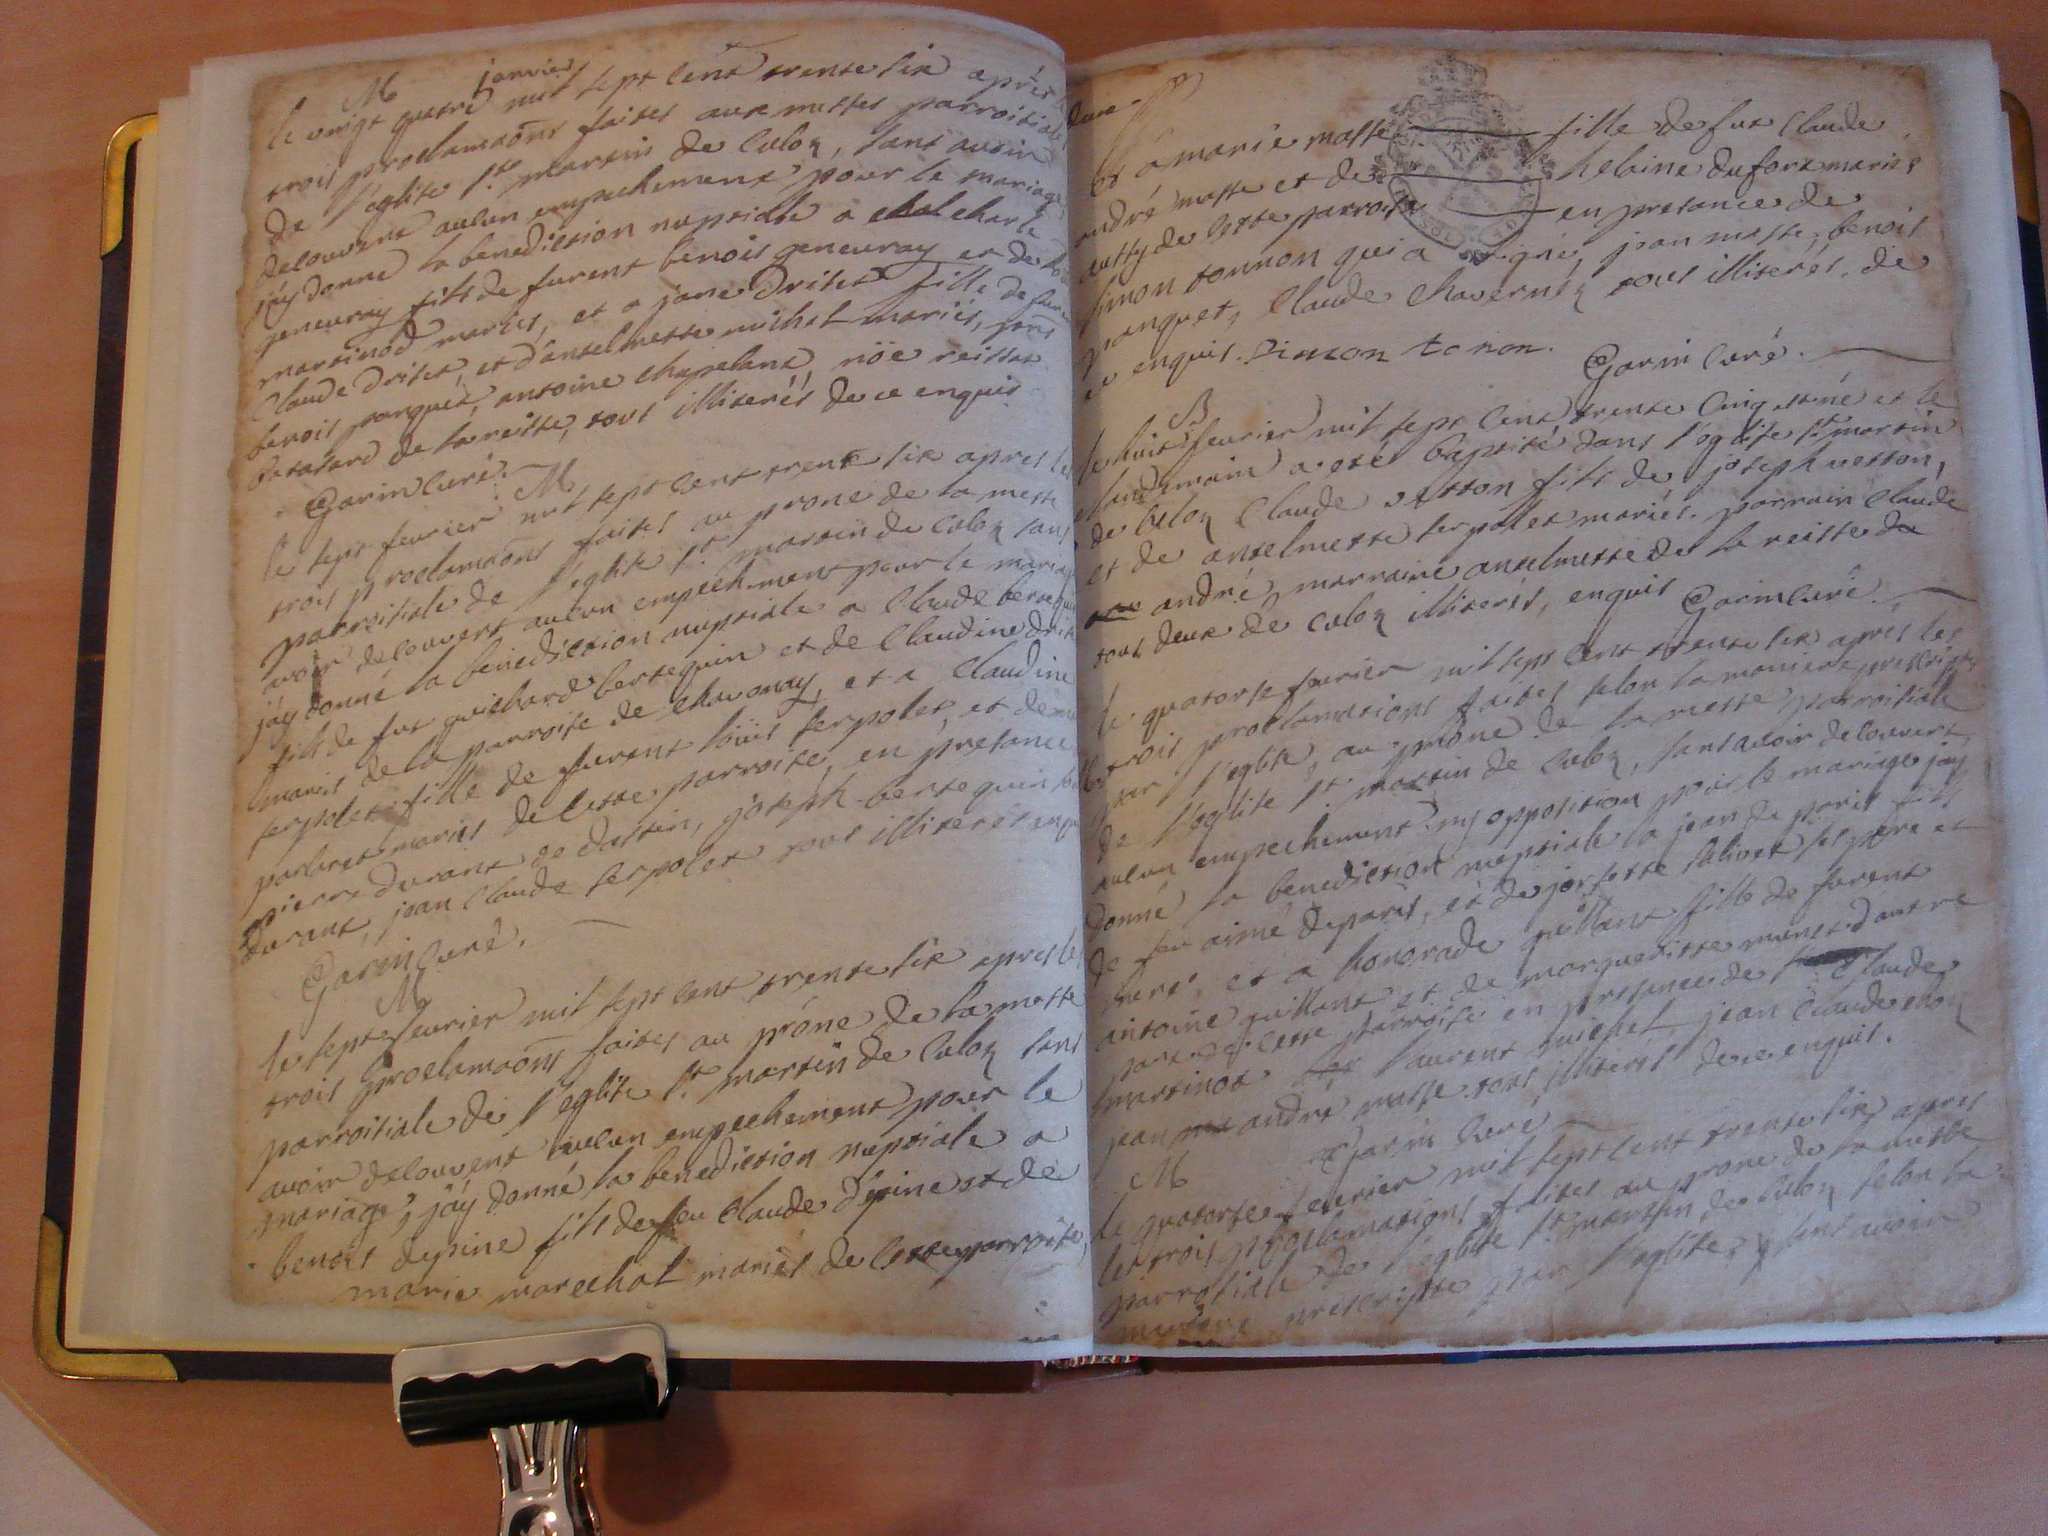 M janvier
le vingt quatre mil sept cent trente six après
trois proclamaõns faites aux messes parroissiales
de l'eglise St martin de Culoz, sans avoir
decouvert aucun empechement pour le mariage,
j'äy donné la benediction nuptiale a charle
geneuray fils de furent benois geneuray et de
martinod mariés, et a jane Driset fille de furent
Claude Driset, et d'antelmette michal mariés, pnts
benois panquet, antoine chapelant, nöe reisset
de la reisse, tous illiterés de ce enquis
Garin Curé. M
le sept fevrier mil sept cent trente six apres les
trois proclamaõns faites au prone de la messe
parroissiale de l'eglise St martin de Culoz sans
avoir decouvert aucun empechement pour le mariage
j'äy donné la benediction nuptiale a Claude bertequin
fils de fut guichard bertequin et de Claudine
mariés de la parroisse de Chavonay, et a Claudine
serpolet fille de furent loüis serpolet, et de
mariés de cette parroisse, en presance
pierre durant de dassin, joseph bertequin
durant, jean Claude serpolet tous illiterés enquis
Garin Curé.
M
le sept fevrier mil sept cent trente six apres les
trois proclamaõns faites au prône de la messe
parroissiale de l'eglise St martin de Culoz sans
avoir decouvert aucun empechement pour le
mariage, j'äy donné la benediction nuptiale a
benois depine fils de feu Claude depine et de
marie marechal mariés de cette parroisse,
et a marie masse fille de fut Claude
andré masse et de helaine dufort mariés
aussy de cette parroisse en presance de
simon tonnon qui a signé, jean masse, benois
panquet, Claude Chavernöz tous illiterés, de
ce enquis. Simon tonon.
Garin Curé.
B
le huit fevrier mil sept cent trente cinq est né et le
landemain a eté baptisé dans l'eglise St martin
de Culoz Claude vetton fils de joseph vetton,
et de antelmette serpolet mariés. parrain Claude
andré, marraine antelmette de la reisse
tous deux de Culoz illiterés, enquis Garin Curé.
le quatorse fevrier mil sept cent trente six après les
trois proclamations faites selon la maniere prescripte
par l'eglise, au prône de la messe parroissiale
de l'eglise St martin de Culoz, sans avoir decouvert
aucun empechement ny opposition pour le mariage j'äy
donné la benediction nuptiale a jean de paris fils
de feu aimé deparis, et de josette salivet ses pere et
mere, et a honorade guillant fille de furent
antoine guillant et de marguerite
de cette parroisse en presance de Claude
martinod laurent michel, jean Claude
jean andre masse tous illiterés de ce enquis.
Garin Curé
M
le quatorse fevrier mil sept cent trente six apres
les trois proclamations faites au prone de la messe
parroissiale de l'eglise St martin de Culoz selon la
maniere prescripte par l'eglise, sans avoir